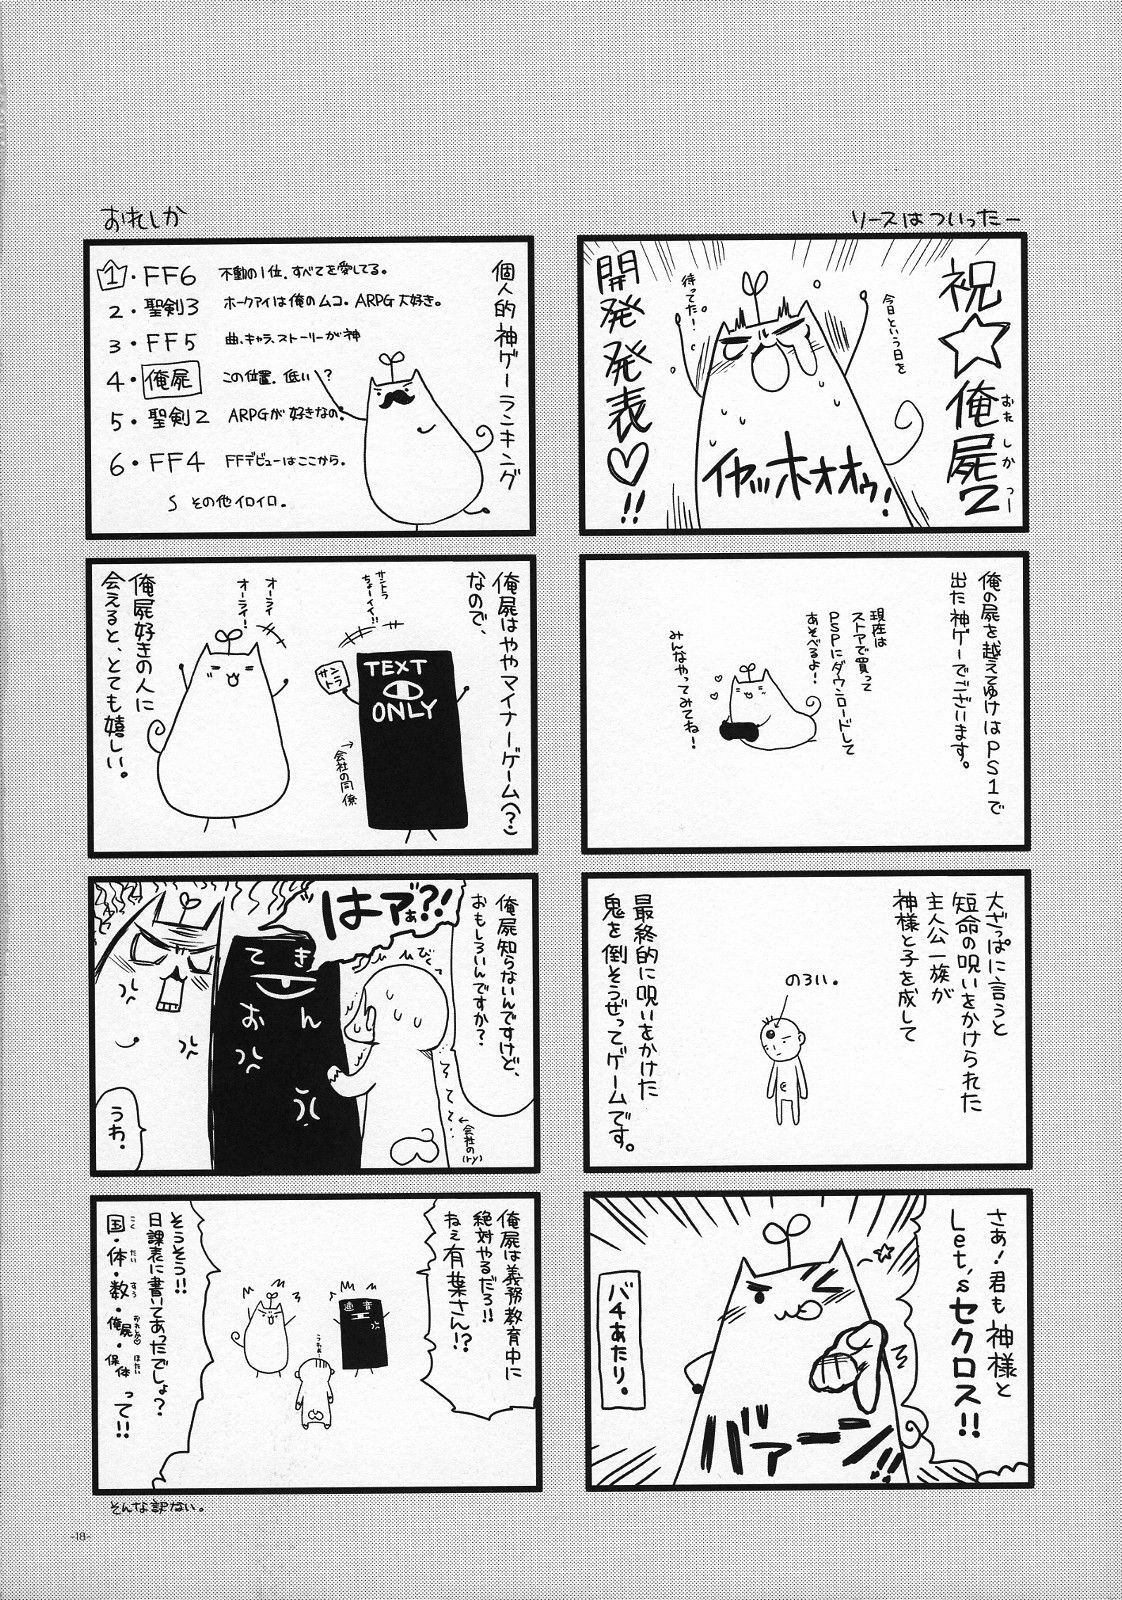 リースはついったー
祝☆俺屍2
おれしかつー
開発発表♡!!
今日という日を
待ってた!
イヤッホオオゥ!
俺の屍を越えてゆけはPS1で
出た神ゲーでございます。
現在は
ストアで買って
PSPにダウンロードして
あそべるよ!
みんなやってみてね!
大ざっぱに言うと
短命の呪いをかけられた
主人公一族が
神様と子を成して
のろい。
最終的に呪いをかけた
鬼を倒そうぜってゲームです。
さぁ!君も神様と
Let'sセクロス!!
バァーン!!
バチあたり。
おれしか
個人的神ゲーランキング
1・FF6 不動の1位、すべてを愛してる。
2・聖剣3 ホークアイは俺のムコ。ARPG大好き。
3・FF5 曲、キャラ、ストーリーが神
4・俺屍 この位置、低い?
5・聖剣2 ARPGが好きなの。
6・FF4 FFデビューはここから。
S その他イロイロ。
俺屍はややマイナーゲーム(?)
なので、
サントラ
ちょーイイ!!
サントラ
TEXT
ONLY
→会社の同僚
オーライ
オーライ!
俺屍好きの人に
会えると、とても嬉しい。
俺屍知らないんですけど、
おもしろいんですか?
はァぁ?!
びくっ
てきおん
←会社の(ry)
うわ。
俺屍は義務教育中に
絶対やるだろ!!
ねぇ有葉さん!?
適音
そうそう!!
日課表に書いてあったでしょ?
国・体・数・俺屍・保体って!!
こく たい すう おれしか ほたい
そんな訳ない。
-18-